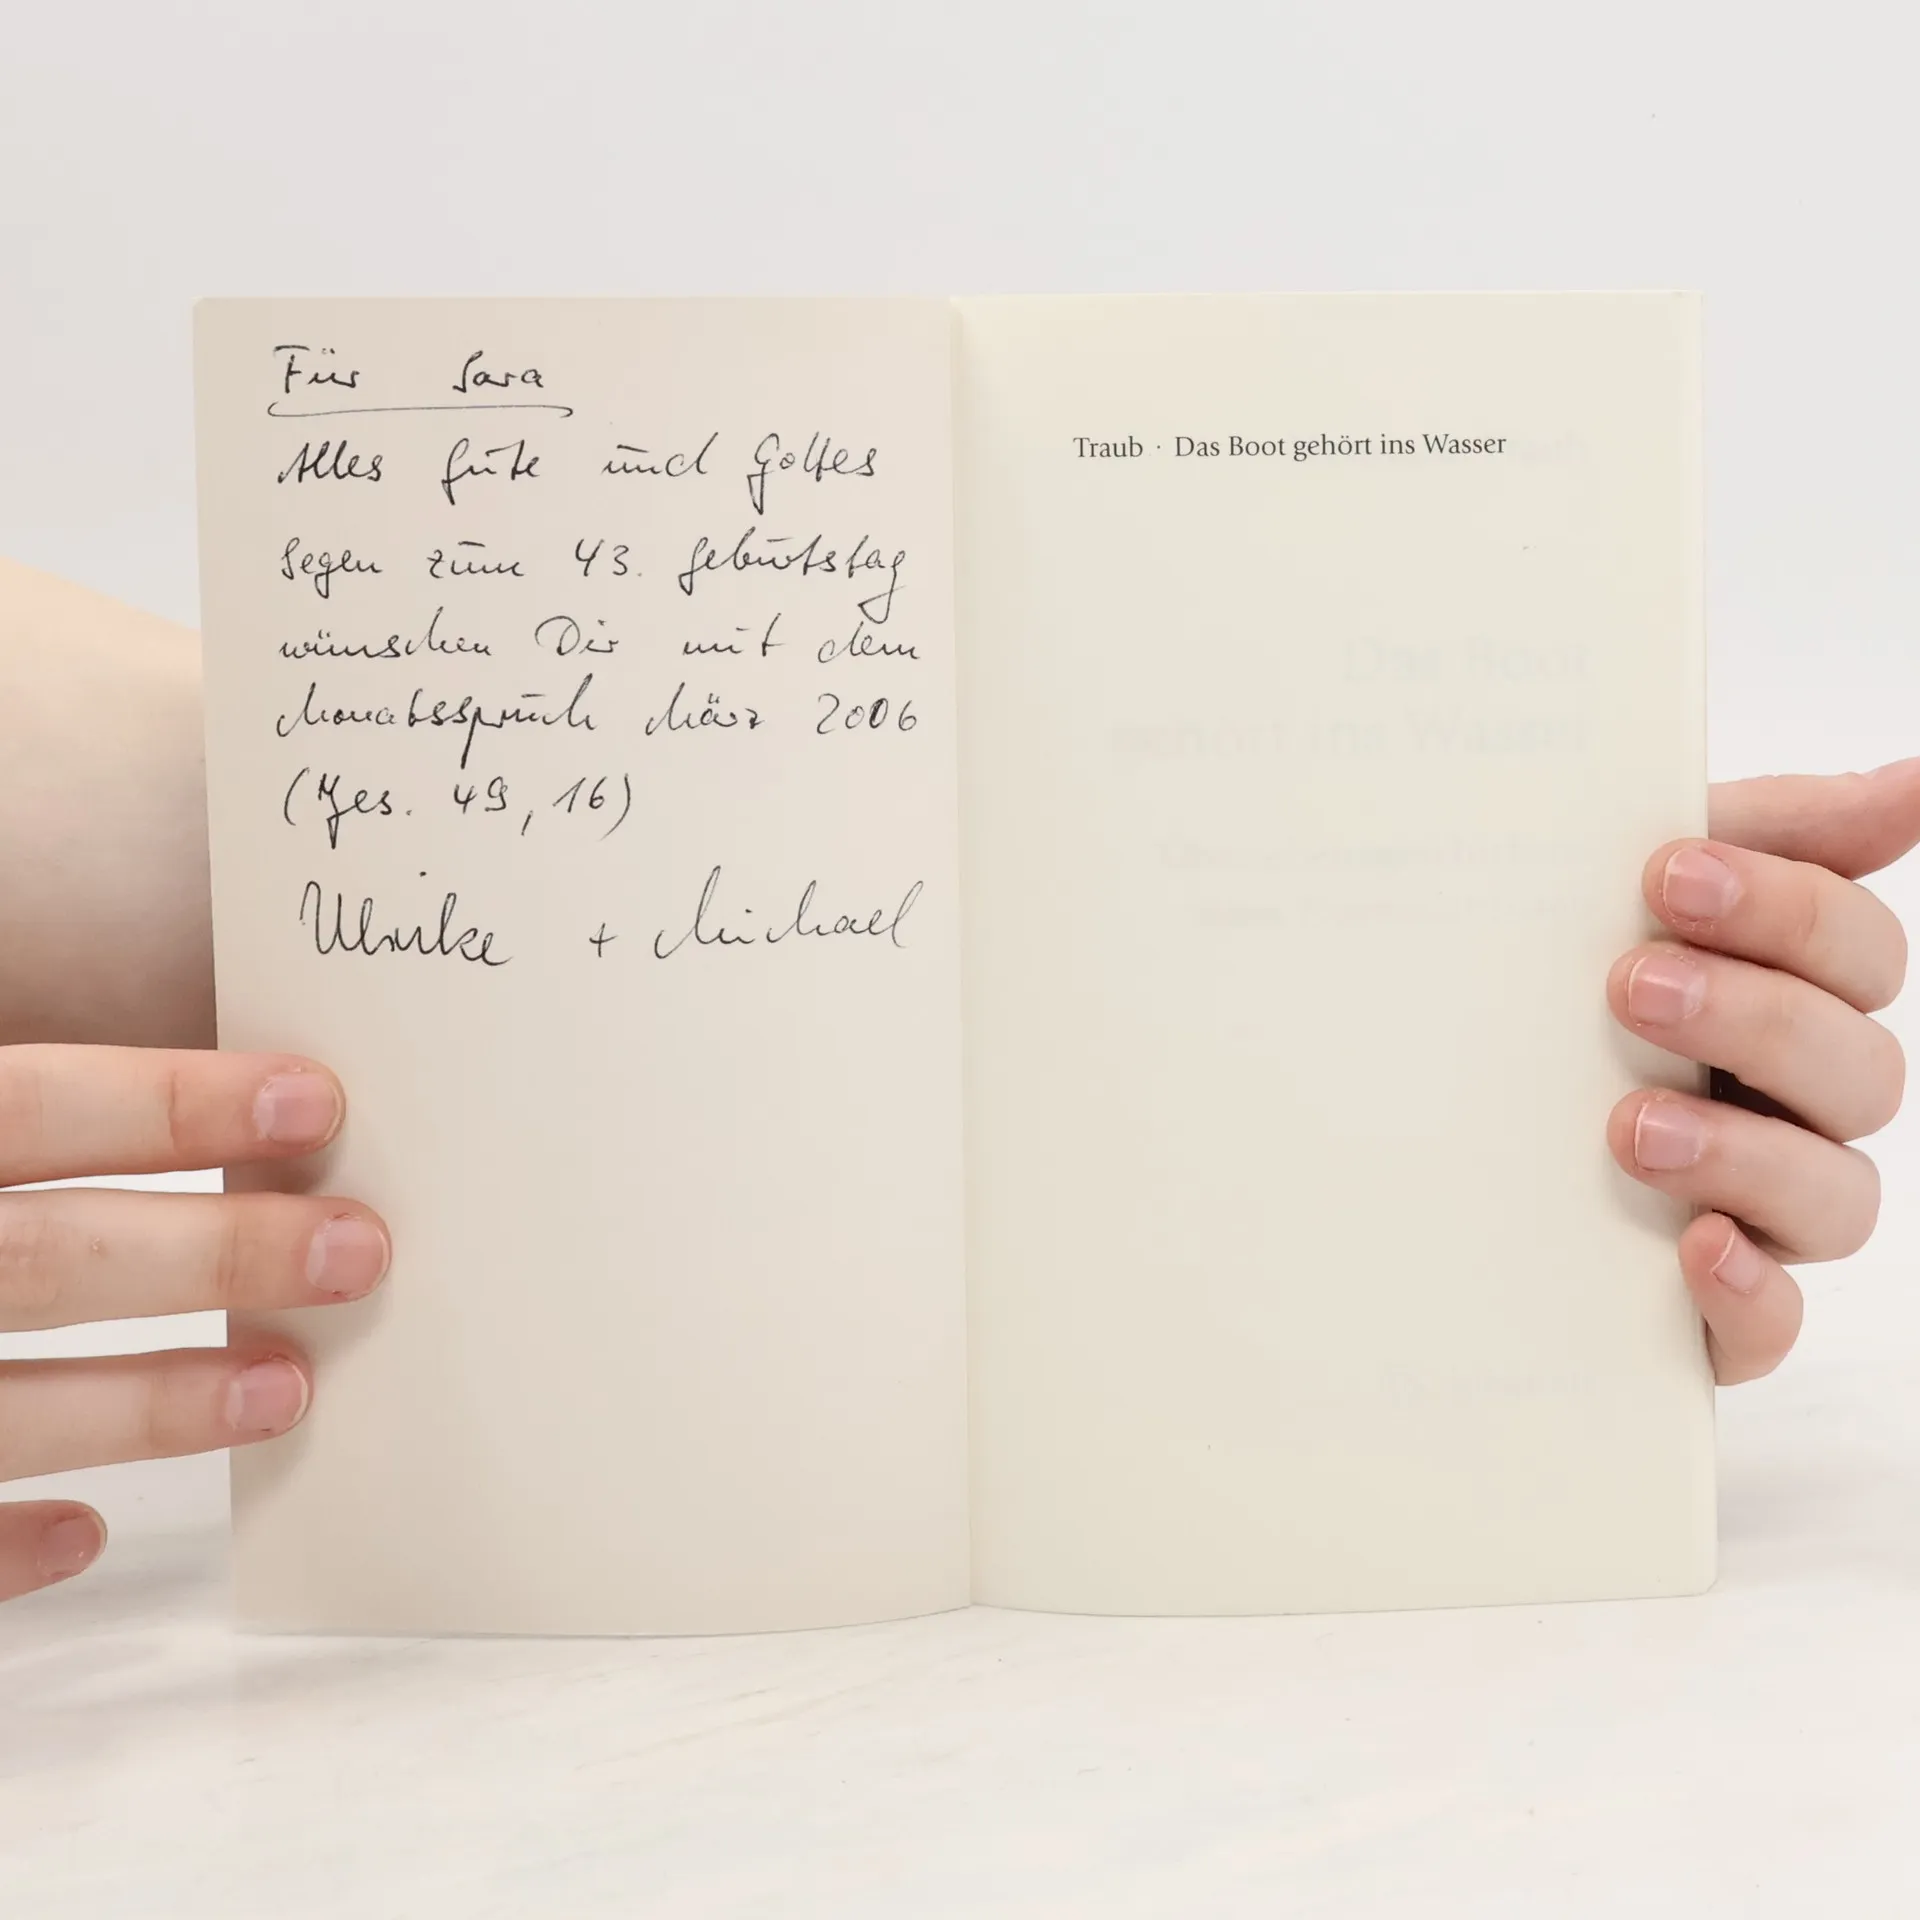 Für Sara
Alles Gute und Gottes
Segen zum 43. Geburtstag
wünschen Dir mit dem
Monatsspruch März 2006
(Jes. 49,16)
Ulrike + Michael
Traub · Das Boot gehört ins Wasser
Das Boot
gehört ins Wasser